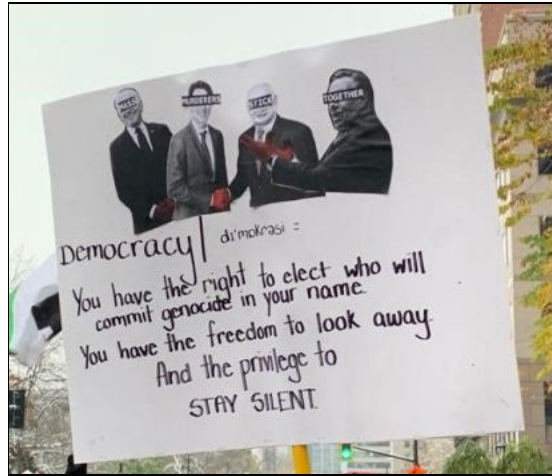 MASS MURDERERS STICK TOGETHER
DEMOCRACY | di'mokrasi =
You have the right to elect who will
commit genocide in your name.
You have the freedom to look away.
And the privilege to
STAY SILENT.